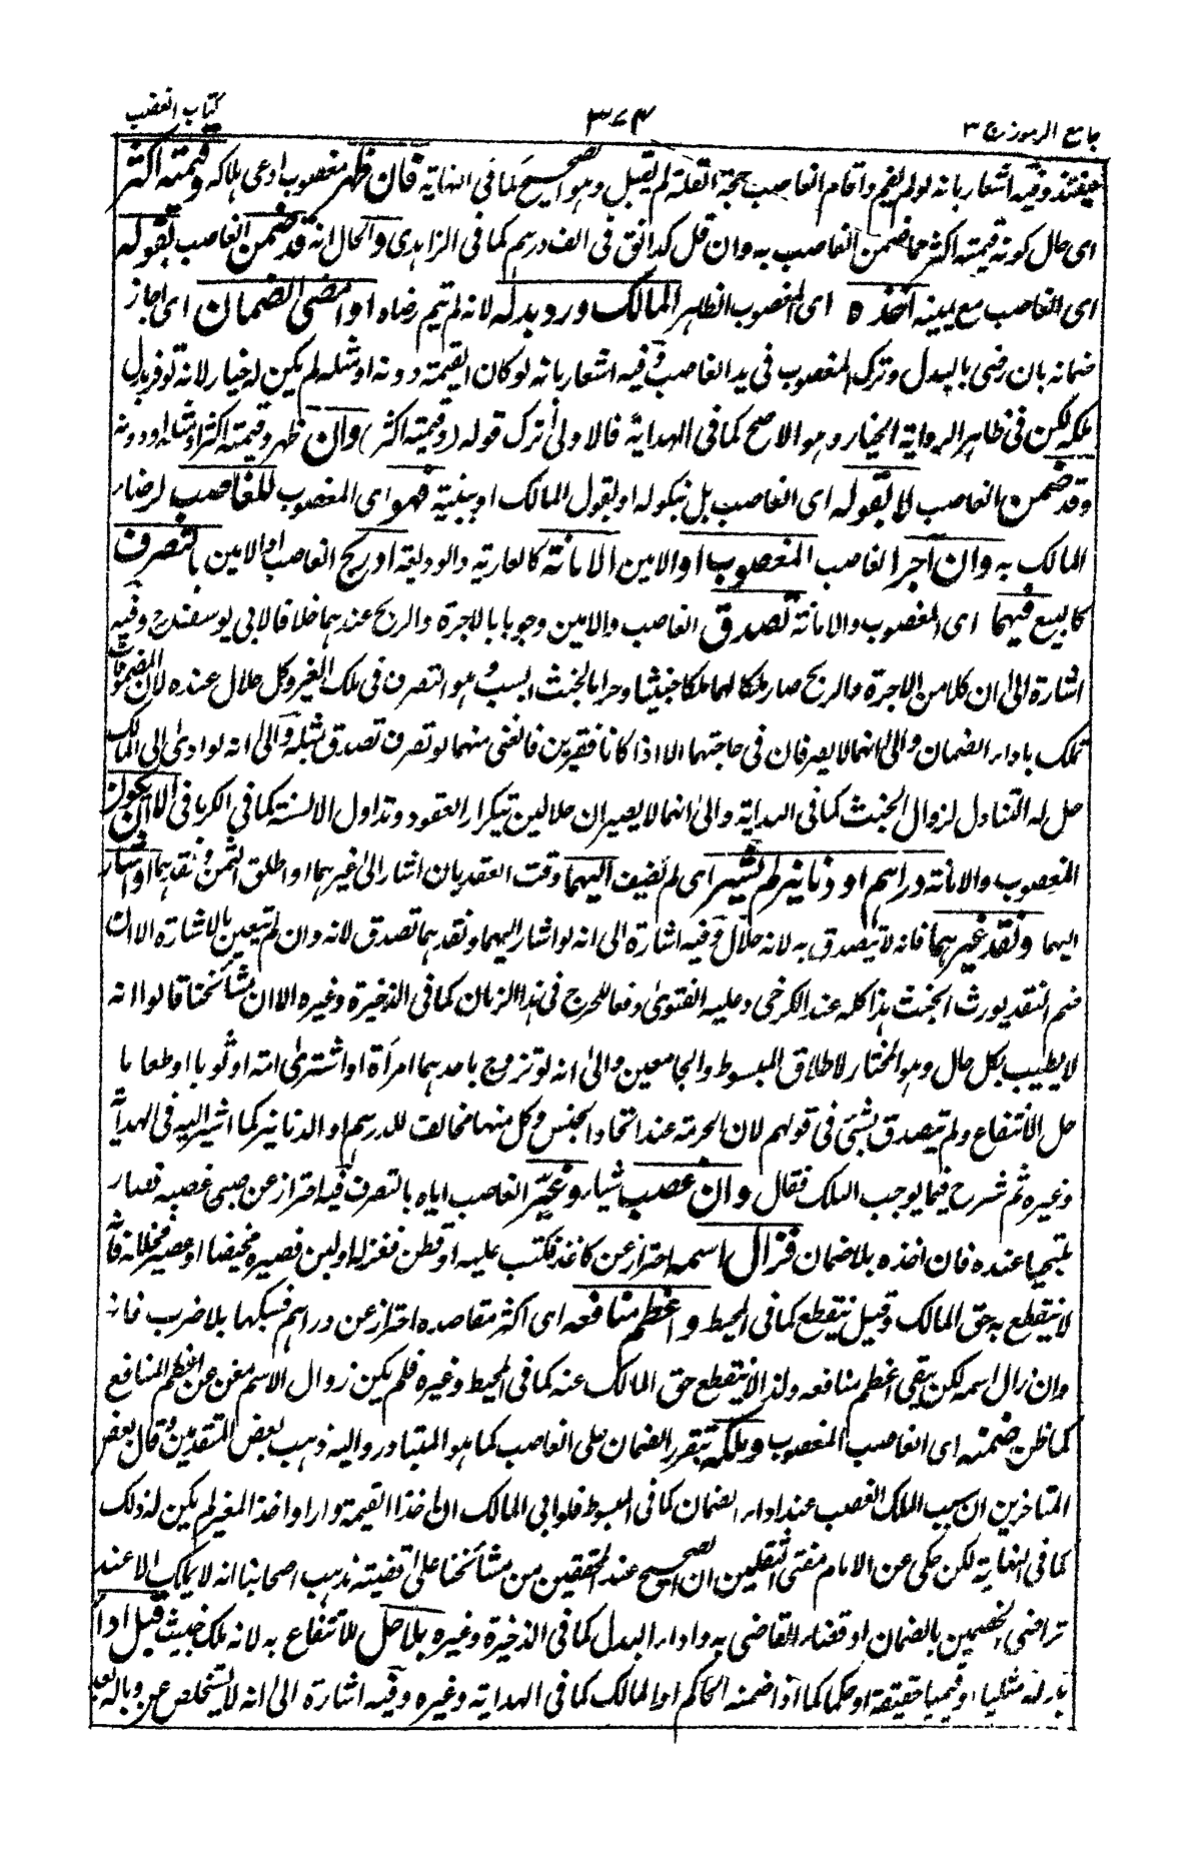 جامع الرموز ج ٣
٣٧٤
كتاب الغصب
وفيه اشعار بانه لو لم يقم واقام الغاصب حجة القلة لم يقبل وهو الصحيح كما فى النهاية فان ظهر مغصوب ادعى هلاكه وقيمته اكثر
اى حال كونه قيمته اكثر مما ضمن الغاصب به وان قل كدانق فى الف درهم كما فى الزاهدى والحال انه قد ضمن الغاصب بقوله
اى الغاصب مع يمينه اخذه اى المغصوب الظاهر المالك ورد بدله لانه لم يتم رضاه او امضى الضمان اى اجاز
ضمانه بان رضى بالبدل وترك المغصوب فى يد الغاصب وفيه اشعار بانه لو كان القيمة دونه او مثله لم يكن له خيار لانه توفر بدل
ملكه لكن فى ظاهر الرواية الخيار وهو الاصح كما فى الهداية فالاولى ترك قوله (وقيمته اكثر) وان ظهر وقيمته اكثر او مثله او دونه
وقد ضمن الغاصب لا بقوله اى الغاصب بل بنكوله او بقول المالك او ببينته فهو اى المغصوب للغاصب لرضاء
المالك به وان آجر الغاصب المغصوب او الامين الامانة كالعارية والوديعة او ربح الغاصب او الامين بالتصرف
كالبيع فيهما اى المغصوب والامانة تصدق الغاصب والامين وجوبا بالاجرة والربح عندهما خلافا لابى يوسف وفيه
اشارة الى ان كلا من الاجرة والربح صار ملكا لهما ملكا خبيثا وحراما لخبث السبب وهو التصرف فى ملك الغير وكل حلال عنده لان المضمونات
تملك باداء الضمان والى انهما لا يصرفان فى حاجتهما الا اذا كانا فقيرين فالغنى منهما لو تصرف تصدق بمثله والى انه لو ادى الى المالك
حل له التناول لزوال الخبث كما فى الهداية والى انهما لا يصيران حلالين بتكرار العقود وتداول الالسنة كما فى الكرمانى الا ان يكون
المغصوب والامانة دراهم او دنانير لم يشير اى لم يضيف اليهما وقت العقد بان اشار الى غيرهما او اطلق الثمن ونقدهما او اشار
اليهما ونقد غيرهما فانه لا يتصدق به لانه حلال وفيه اشارة الى انه لو اشار اليهما ونقدهما تصدق لانه وان لم يتعين بالاشارة الا ان
ضم النقد يورث الخبث هذا كله عند الكرخى وعليه الفتوى دفعا للحرج فى هذا الزمان كما فى الذخيرة وغيره الا ان مشائخنا قالوا انه
لا يطيب بكل حال وهو المختار لاطلاق المبسوط والجامعين والى انه لو تزوج باحدهما امرأة او اشترى امة او ثوبا او طعاما
حل الانتفاع ولم يتصدق بشئ فى قولهم لان الحرمة عند اتحاد الجنس وكل منهما مخالف للدرهم والدنانير كما اشير اليه فى الهداية
وغيره ثم شرح فيما يوجب الملك فقال وان غصب شيئا وغيّر الغاصب اياه بالتصرف فيه احتراز عن صبى غصبه فصار
ملتحيا عنده فان اخذه بلا ضمان فزال اسمه احتراز عن كاغذ فكتب عليه او قطن فغزله او لبن فصيره مخيضا او عصير فخلله فانه
لا ينقطع به حق المالك وقيل ينقطع كما فى المحيط و اعظم منافعه اى اكثر مقاصده احتراز عن دراهم فسبكها بلا ضرب فانه
وان زال اسمه لكن بقى اعظم منافعه ولذا لا ينقطع حق المالك عنه كما فى المحيط وغيره فلم يكن زوال الاسم مغن عن اعظم المنافع
كما ظن ضمنه اى الغاصب المغصوب وملكه بتقرر الضمان على الغاصب كما هو المتبادر واليه ذهب بعض المتقدمين وقال بعض
المتاخرين ان سبب الملك الغصب عند اداء الضمان كما فى المبسوط فلو ابى المالك ان اخذ القيمة واراد اخذ المغير لم يكن له ذلك
كما فى النهاية لكن حكى عن الامام مفتى الثقلين ان الصحيح عند المحققين من مشائخنا على قضية مذهب اصحابنا انه لا يملك الا عند
تراضى الخصمين بالضمان او قضاء القاضى به واداء البدل كما فى الذخيرة وغيره بلا حل للانتفاع به لانه ملك خبيث قبل اداء
بدله مثليا او قيميا حقيقة او حكما كما اذا ضمنه الحاكم او المالك كما فى الهداية وغيره وفيه اشارة الى انه لا يتخلص عن وباله